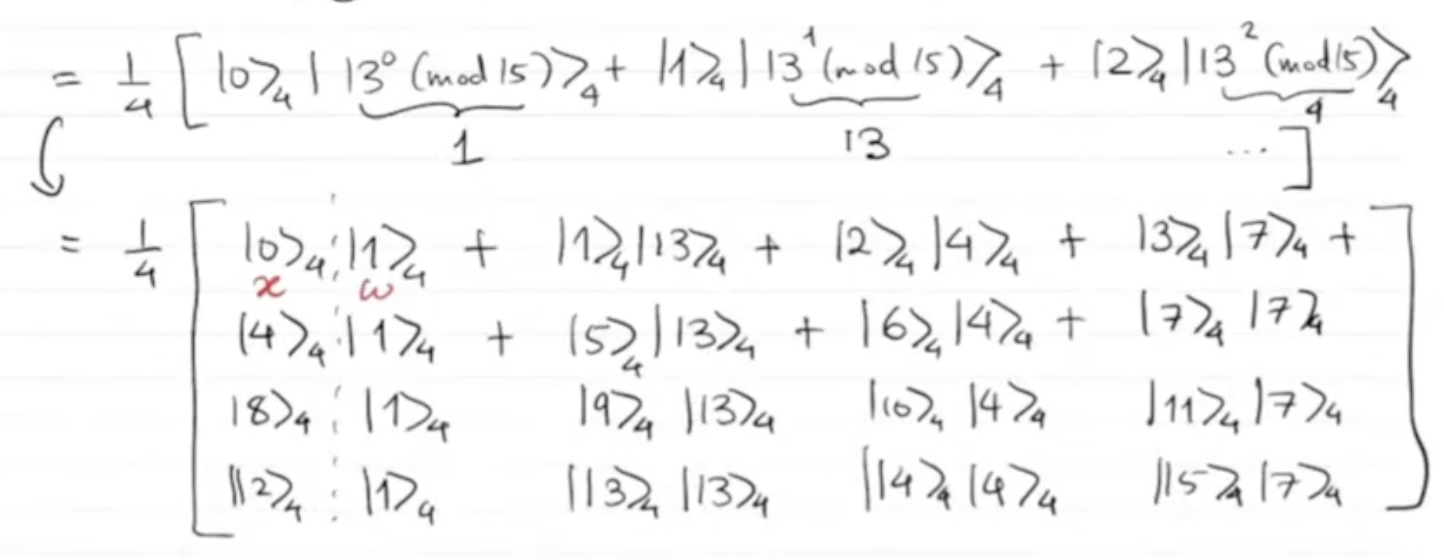 = 1/4 [ |0⟩₄ | 13⁰ (mod 15)⟩₄ + |1⟩₄ | 13¹ (mod 15)⟩₄ + |2⟩₄ | 13² (mod 15)⟩₄
1 13 4
... ]
= 1/4 [ |0⟩₄ |1⟩₄ + |1⟩₄ |13⟩₄ + |2⟩₄ |4⟩₄ + |3⟩₄ |7⟩₄ +
x w
|4⟩₄ |1⟩₄ + |5⟩₄ |13⟩₄ + |6⟩₄ |4⟩₄ + |7⟩₄ |7⟩₄
|8⟩₄ |1⟩₄ |9⟩₄ |13⟩₄ |10⟩₄ |4⟩₄ |11⟩₄ |7⟩₄
|12⟩₄ |1⟩₄ |13⟩₄ |13⟩₄ |14⟩₄ |4⟩₄ |15⟩₄ |7⟩₄ ]